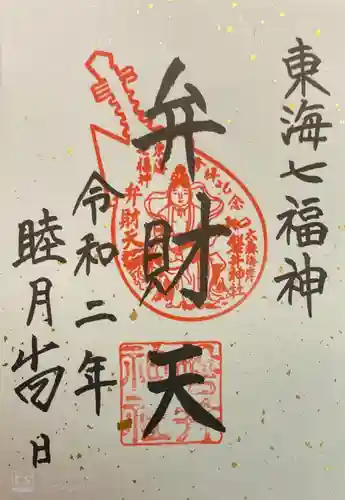 東海七福神
弁財天
令和二年
睦月当日
弁財天
磐井神社